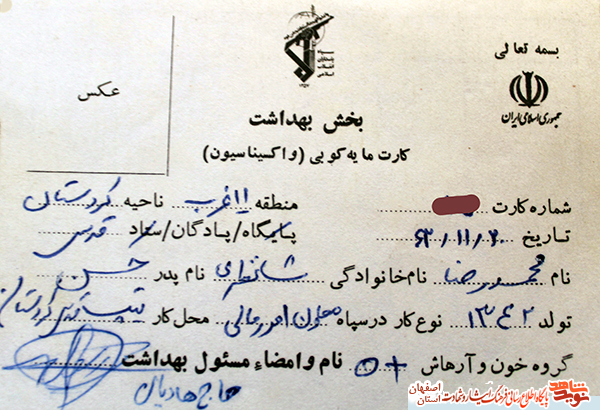 بسمه تعالی
جمهوری اسلامی ایران
عکس
بخش بهداشت
کارت مایه کوبی (واکسیناسیون)
شماره کارت
منطقه ۱۱ غرب ناحیه کردستان
تاریخ ۶۳/۱۱/۲۰ پایگاه/پادگان/ستاد قدس
نام محمدرضا نام خانوادگی نام پدر حسن
تولد ۱۳۴۲ نوع کار در سپاه معاون امور مالی محل کار تیپ قدس کردستان
گروه خون و آرهاش O+ نام و امضاء مسئول بهداشت
حاج هادیان
نوید شاهد
پایگاه اطلاع رسانی فرهنگ ایثار و شهادت
استان اصفهان